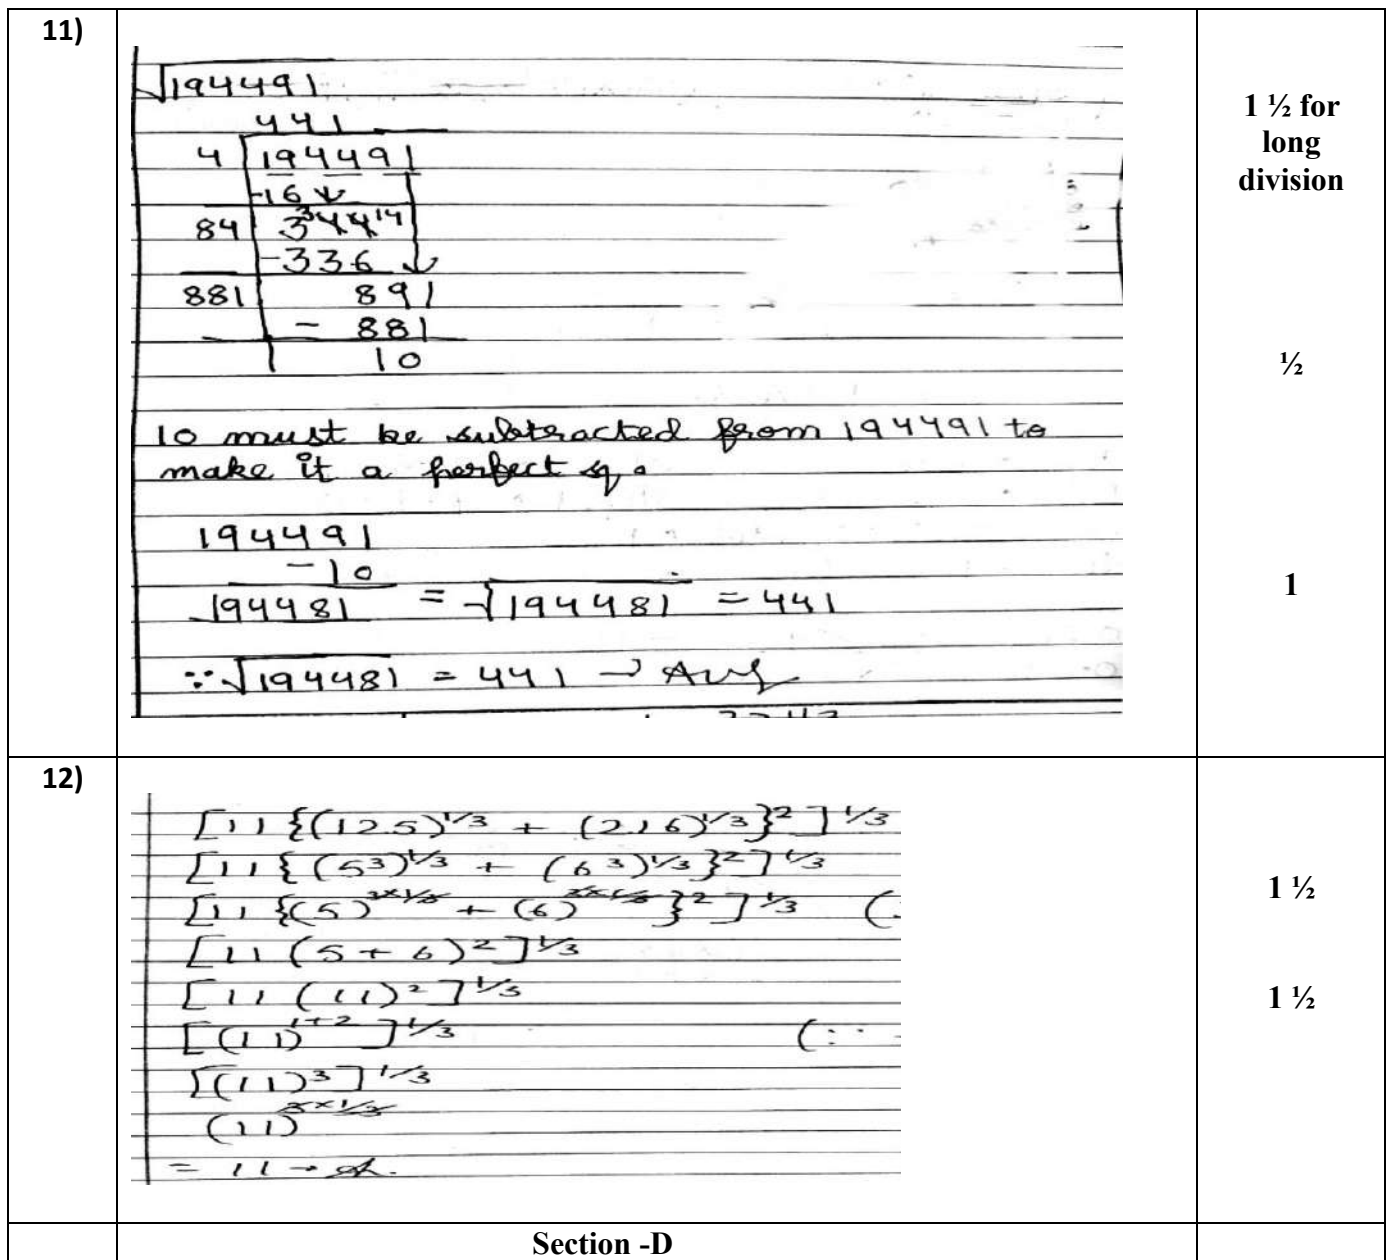 11)
√194491
441
4 194491
-16↓
84 3³4414
-336↓
881 891
- 881
10
10 must be subtracted from 194491 to
make it a perfect sq.
194491
-10
194481 = √194481 = 441
∵ √194481 = 441 → Ans
1 ½ for
long
division
½
1
12)
[11 {(125)^1/3 + (216)^1/3}²]^1/3
[11 { (5³)^1/3 + (6³)^1/3}²]^1/3
[11 {(5)^3×1/3 + (6)^3×1/3 }²]^1/3 (
[11 (5+6)²]^1/3
[11 (11)²]^1/3
[(11)^1+2]^1/3 (∵
[(11)³]^1/3
(11)^3×1/3
= 11 →
1 ½
1 ½
Section -D